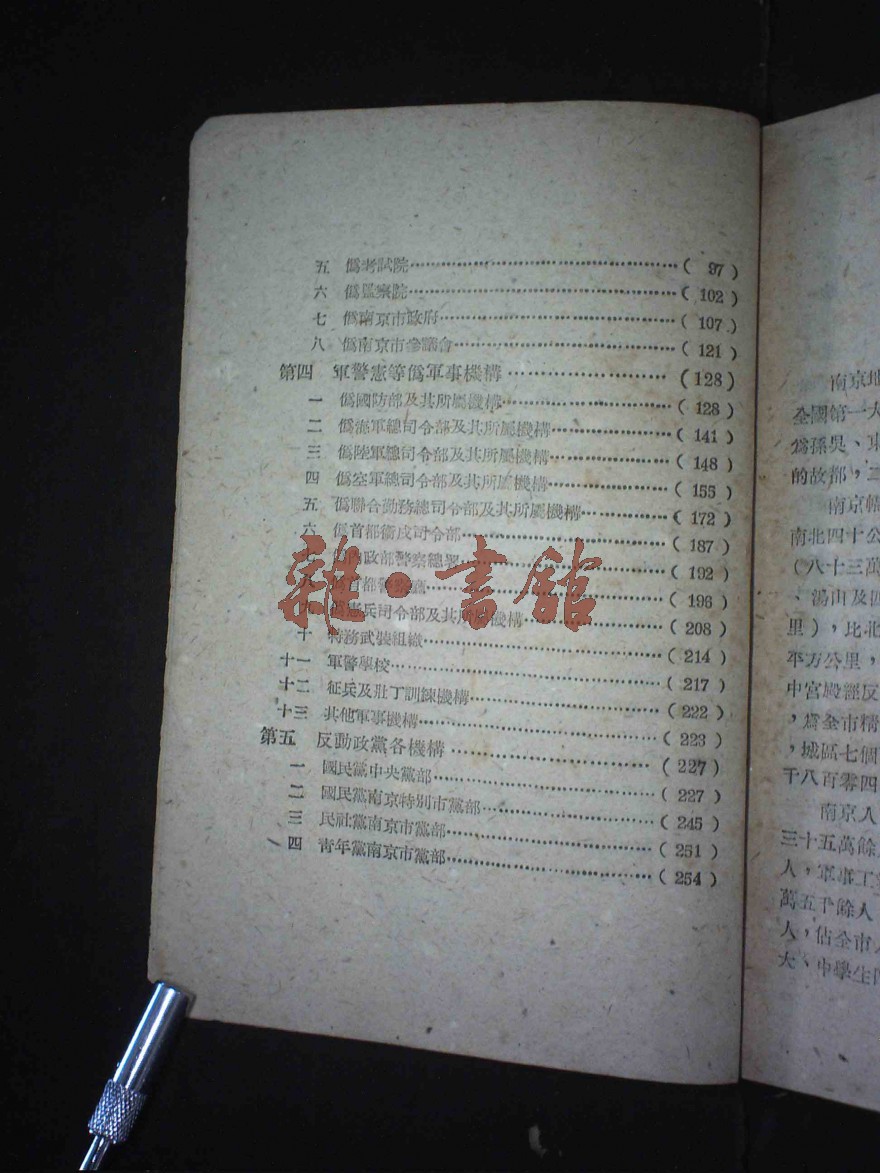 五 僞考試院……(97)
六 僞監察院……(102)
七 僞南京市政府……(107)
八 僞南京市參議會……(121)
第四 軍警憲等僞軍事機構……(128)
一 僞國防部及其所屬機構……(128)
二 僞海軍總司令部及其所屬機構……(141)
三 僞陸軍總司令部及其所屬機構……(148)
四 僞空軍總司令部及其所屬機構……(155)
五 僞聯合勤務總司令部及其所屬機構……(172)
六 僞首都衞戍司令部……(187)
七 僞內政部警察總署……(192)
八 僞首都警察廳……(196)
九 僞憲兵司令部及其所屬機構……(208)
十 特務武裝組織……(214)
十一 軍警學校……(217)
十二 征兵及壯丁訓練機構……(222)
十三 其他軍事機構……(223)
第五 反動政黨各機構……(227)
一 國民黨中央黨部……(227)
二 國民黨南京特別市黨部……(245)
三 民社黨南京市黨部……(251)
四 青年黨南京市黨部……(254)
雜·書館
南京地
全國第一大
爲孫吳、東
的故都，二
南京幅
南北四十公
（八十三萬
、湯山及四
里），比北
平方公里，
中宮殿經反
，爲全市精
，城區七個
千八百零四
南京人
三十五萬餘
人，軍事工
萬五千餘人
人，佔全市
大、中學生